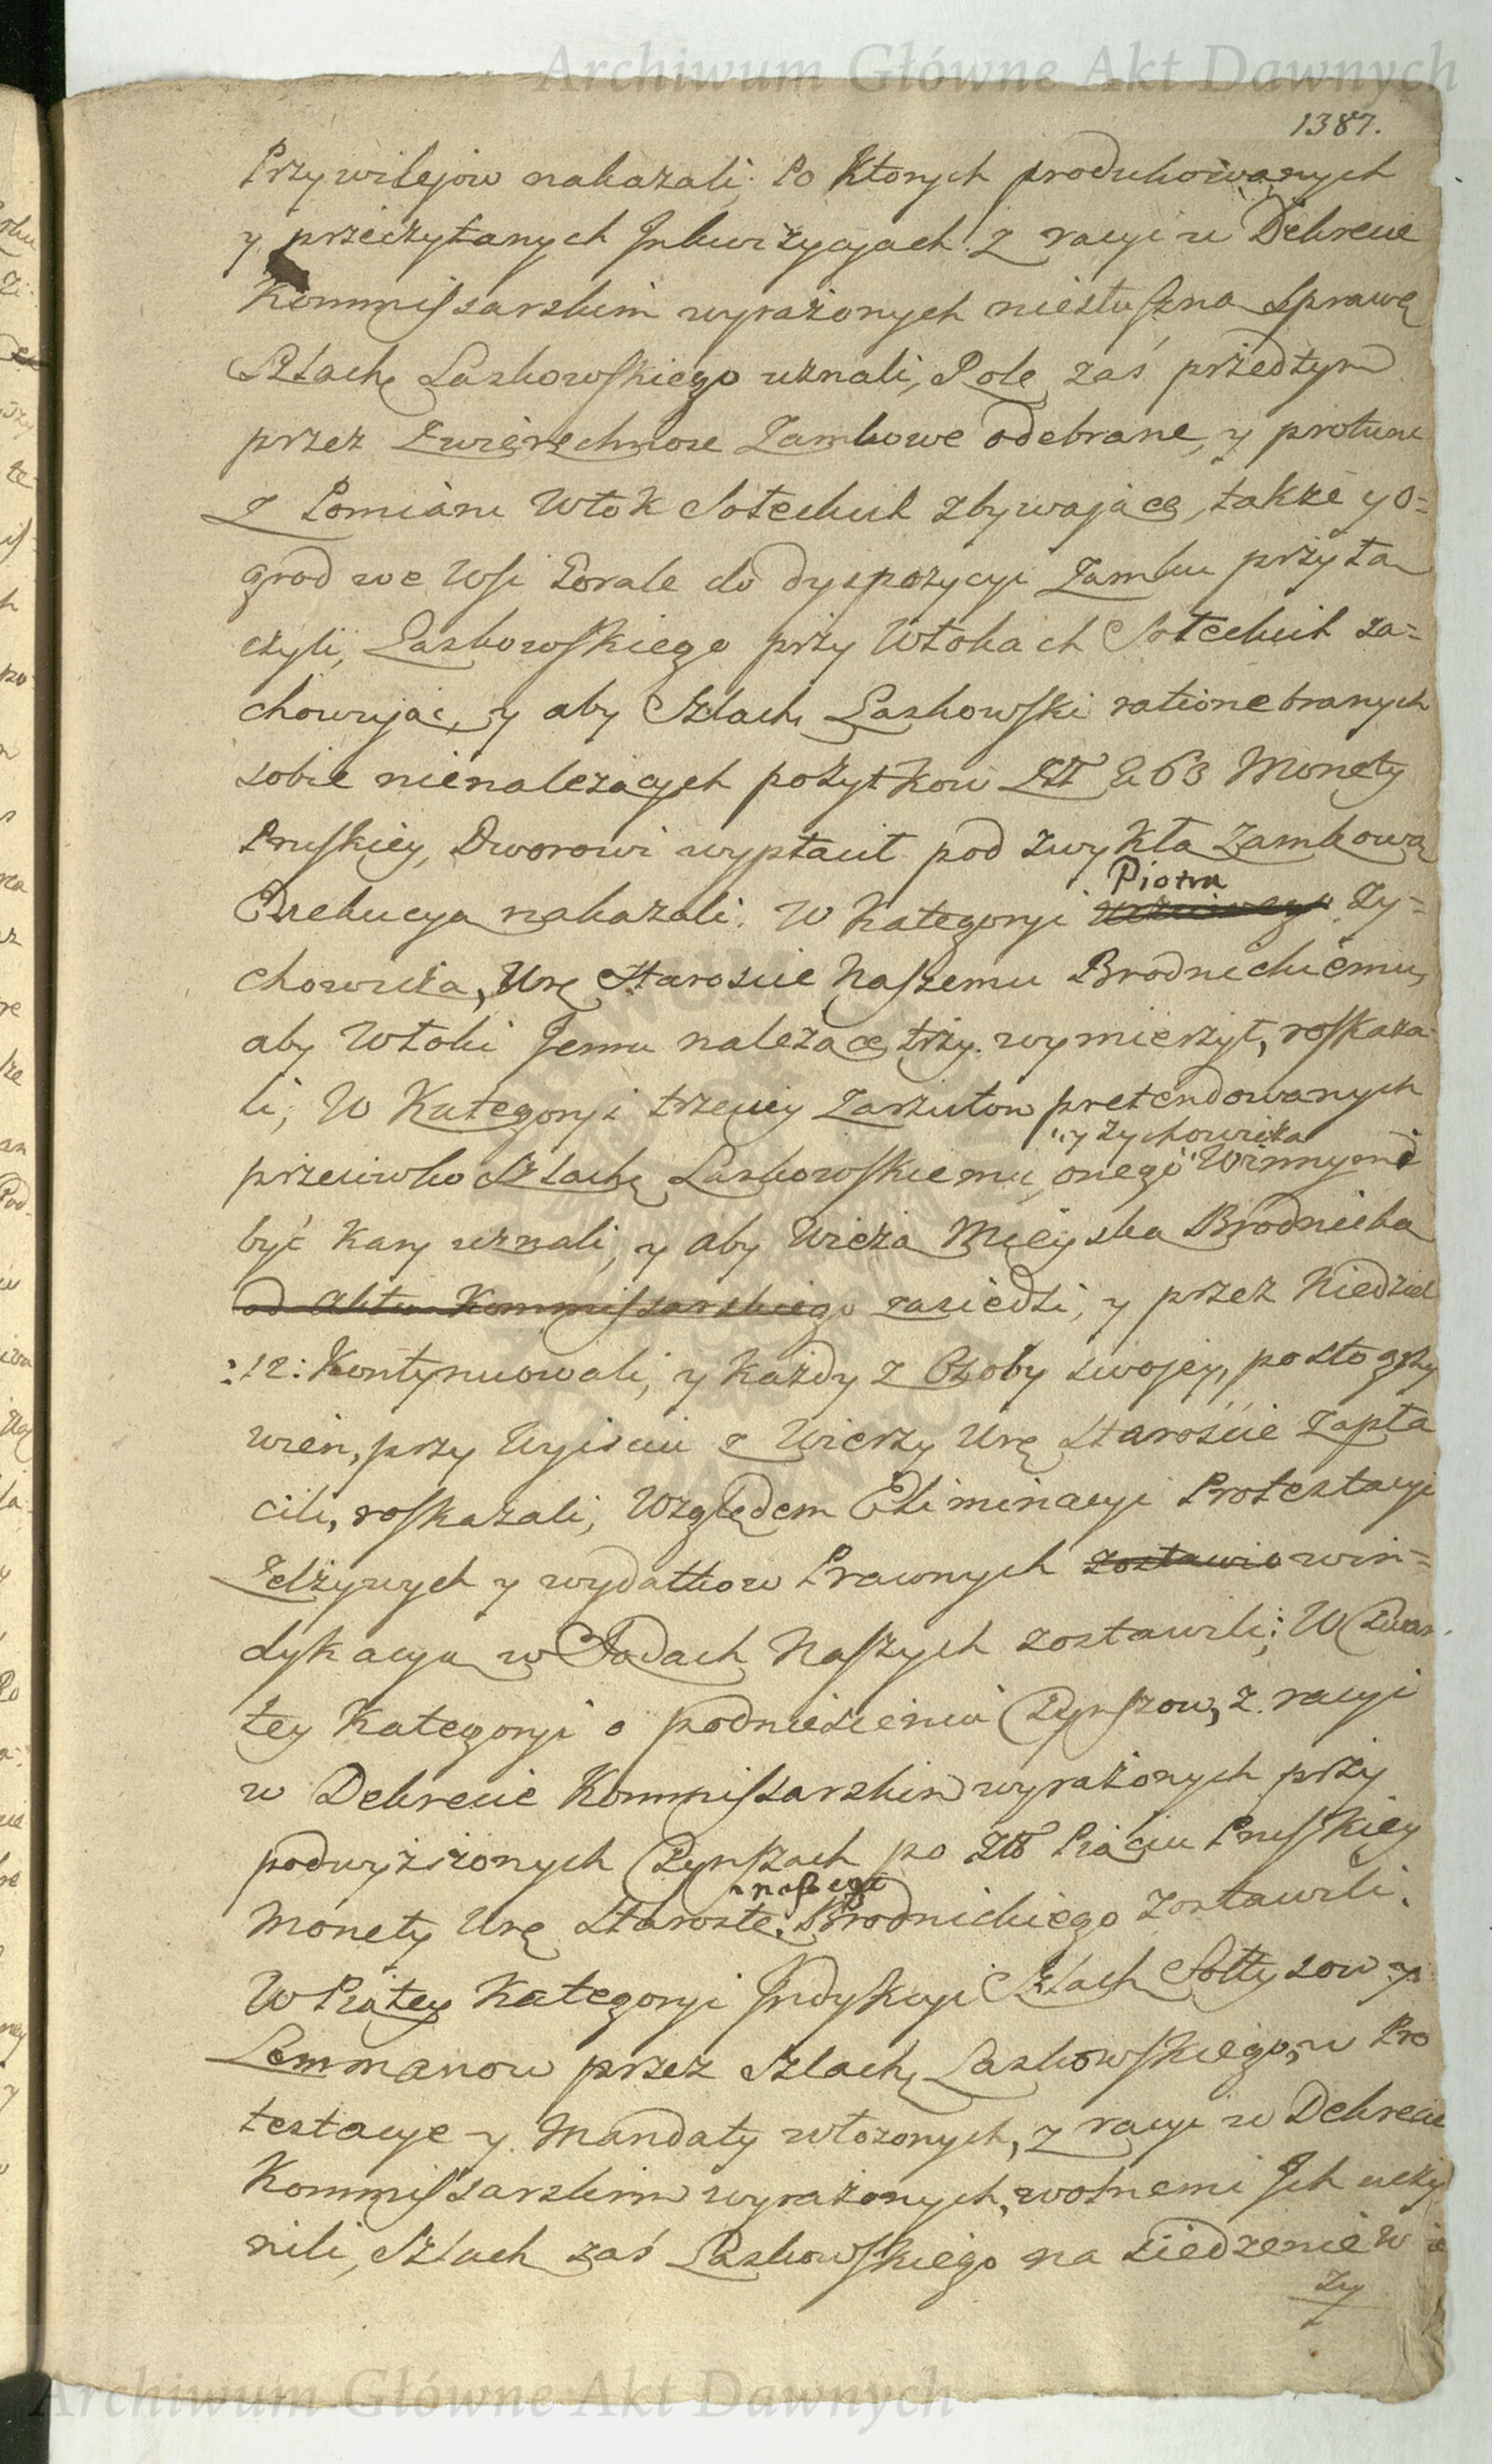 Archiwum Główne Akt Dawnych
1387.
Przywilejow nakazali; Po Ktorych produkowanych
y przeczytanych Inkwizycyach z racyi w Dekrecie
Kommissarskim wyrażonych niesłuszną Sprawę
Szlach: Laskowskiego uznali, Pole zaś przedtym
przez Zwierzchnosc Zamkowe odebrane, y protunc
z Pomiaru Włok Sołeckich zbywaiące, także y O=
grod we Wsi Gorale do dyspozycyi Zamku przyłą
czyli, Laskowskiego przy Włokach Sołeckich za=
chowując, y aby Szlach: Laskowski ratione branych
sobie nienalezących pożytkow Złł 263 Monety
Pruskiey, Dworowi wypłacił pod zwykłą Zamkową
Exekucyą nakazali. W Kategoryi Piotra Zy=
chowicza, Urę Staroscie Naszemu Brodnickiemu,
aby Włoki Jemu nalezące trzy wymierzył, roskaza=
li, W Kategoryi trzeciey Zarzutow pretendowanych
przeciwko Szlach: Laskowskiemu, onego "y Zychowicza" Winnymi
być Kary uznali, y aby Wieżą Mieyską Brodnicką
od Aktu Kommissarskiego zasiedli, y przez Niedziel
:12: Kontynuowali, y każdy z Osoby swojey, po sto grzy
wien, przy Wyisciu z Wierzy Urę Staroście Zapła
cili, roskazali, Względem Eliminacyi Protestacyi
Zelżywych y wydatkow Prawnych zostawio win=
dykacyą w Sądach Naszych zostawili; W Czwar
tey Kategoryi o podniesieniu Czynszow, z racyi
w Dekrecie Kommissarskim wyrażonych przy
podwyższonych Czynszach po Złł Piąciu Pruskiey
Monety Urę Starostę naszego Brodnickiego zostawili.
W Piątey Kategoryi Indykcyi Szlach: Sołtysow y
Lemmanow przez Szlach: Laskowskiego, w Pro
testacye y Mandaty włożonych, z racyi w Dekrecie
Kommissarskim wyrażonych, wolnemi Ich uczy
nili, Szlach: zaś Laskowskiego na siedzenie Wie
zy
Archiwum Główne Akt Dawnych